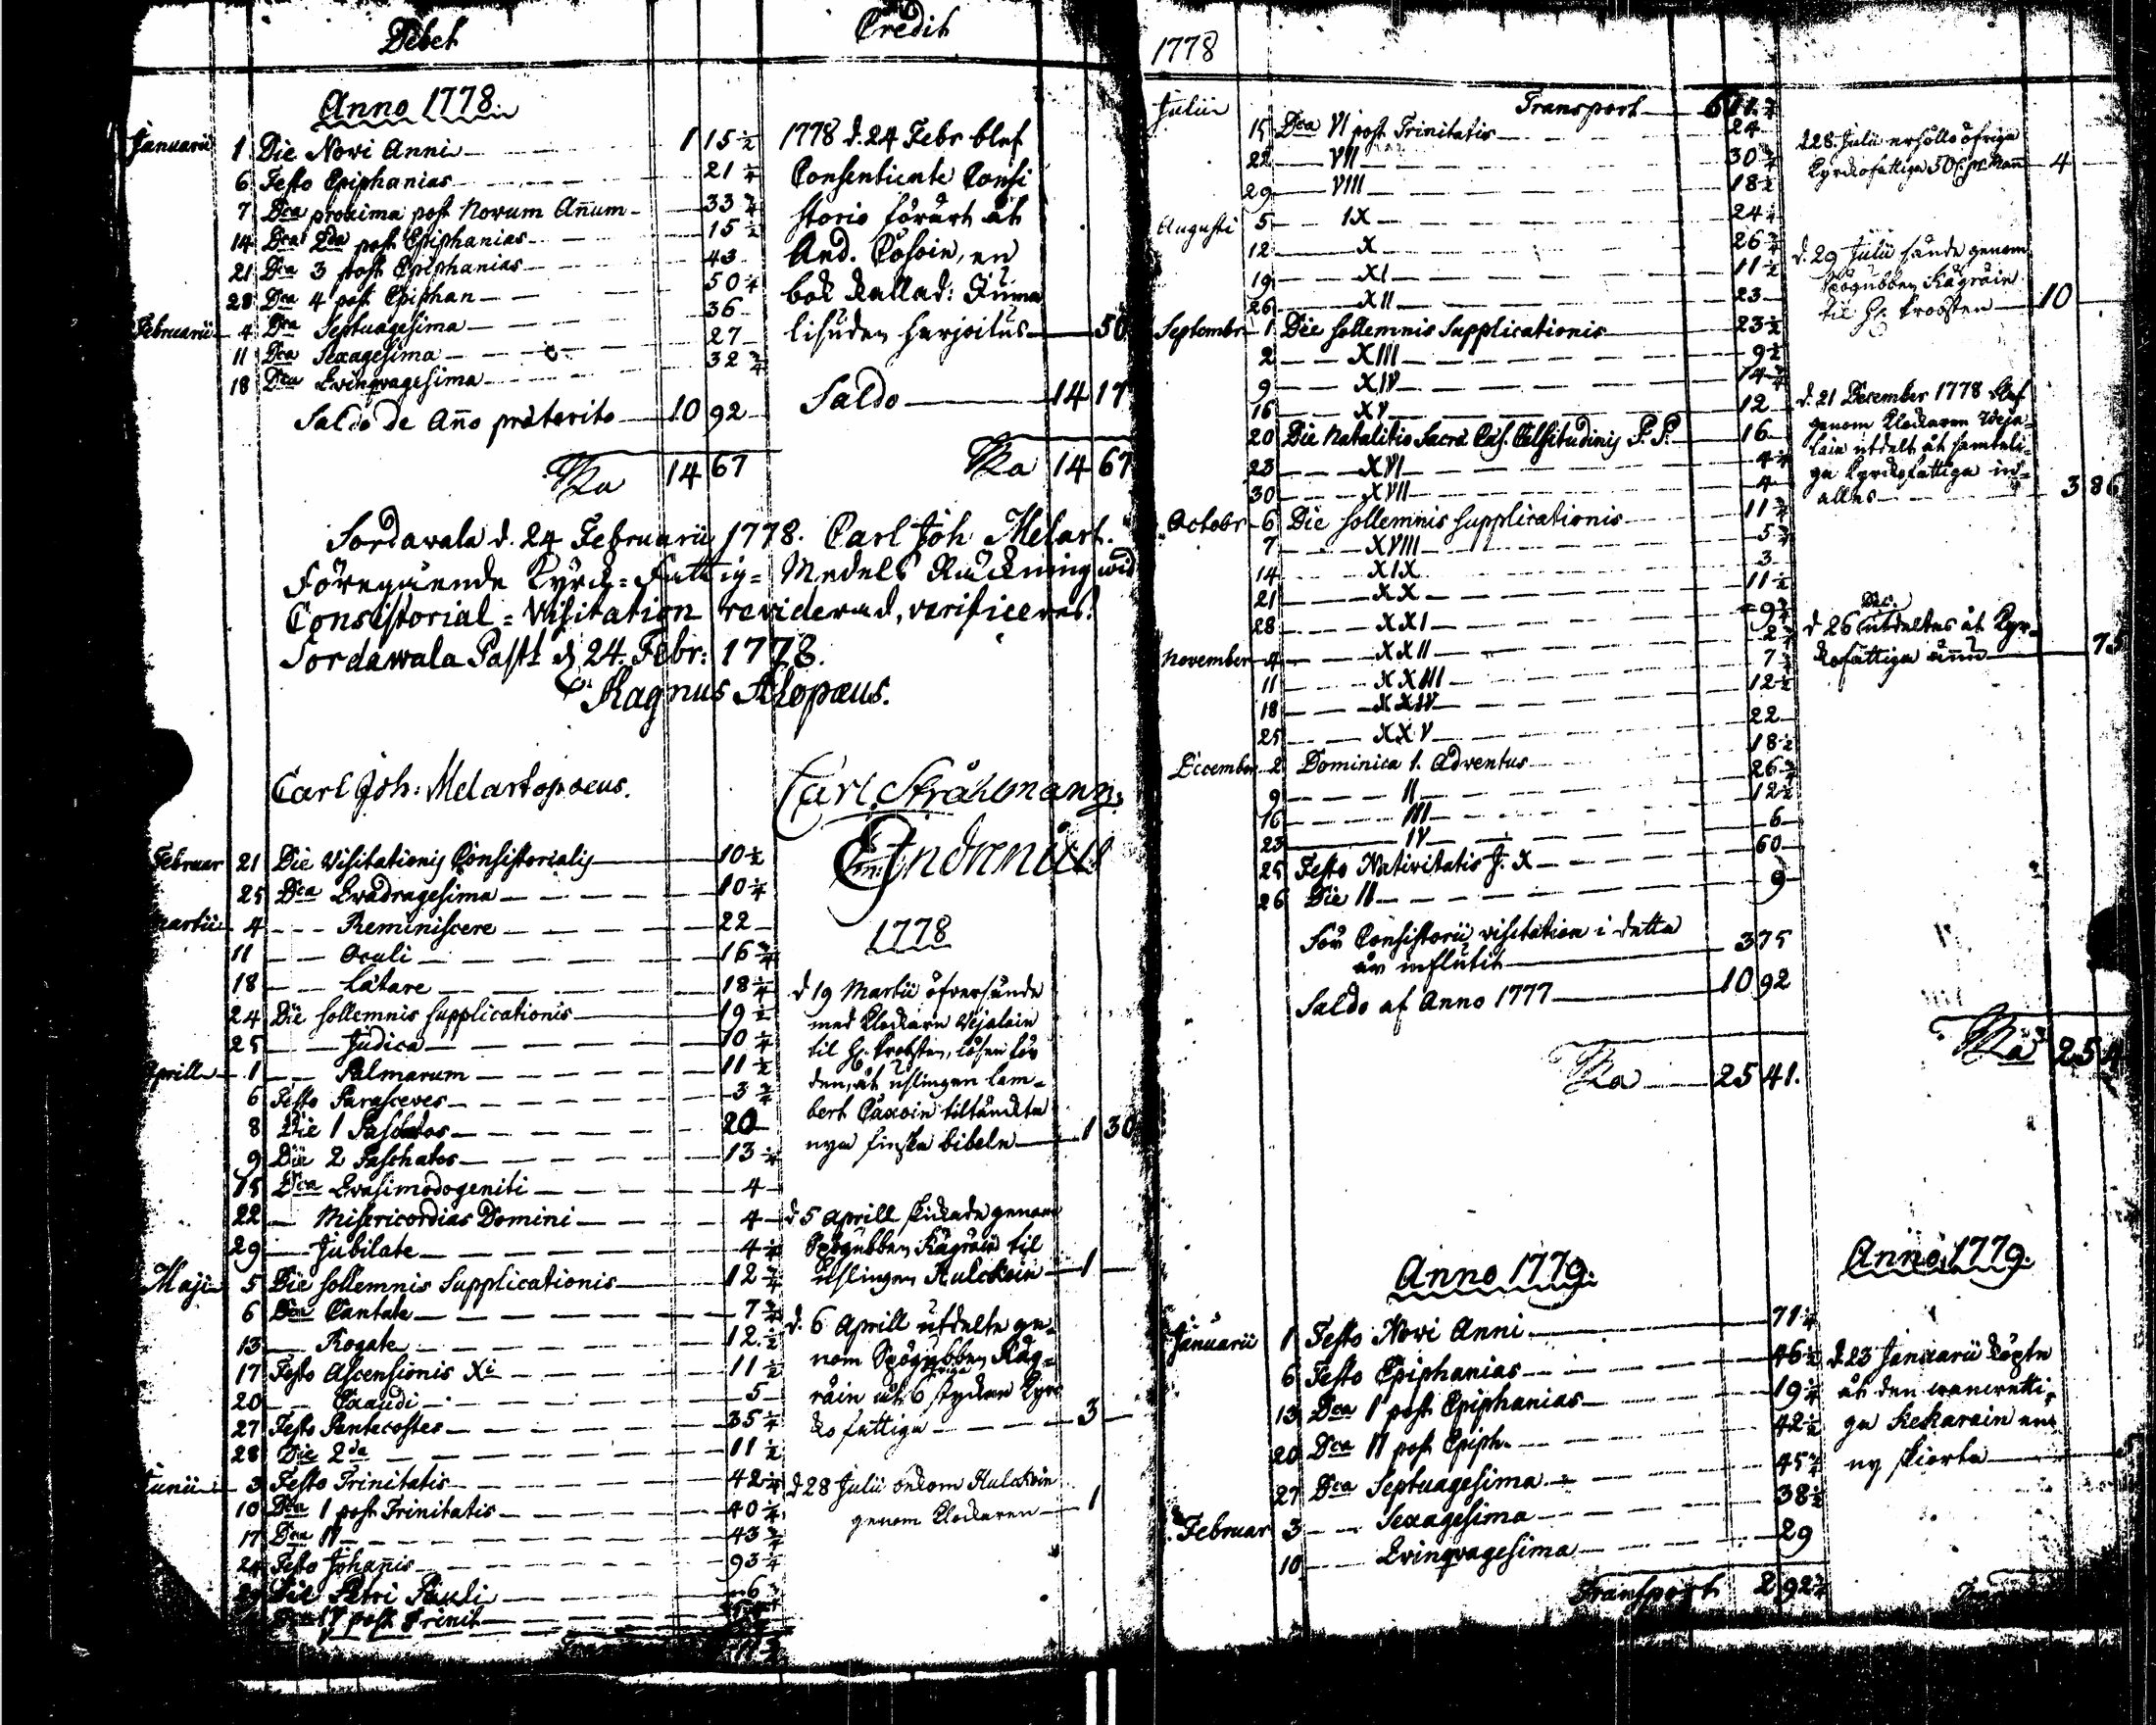 Debet
Credit
Anno 1778.
Januarii 1 Die Novi Anni 1 15 1/2
6 Festo Epiphanias 21 1/4
7 Dca proxima post Novum Añum 33 3/4
14 Dca 2da post Epiphanias 15 1/2
21 Dca 3 post Epiphanias 43
28 Dca 4 post Epiphan 50 1/4
Februarii 4 Dca Septuagesima 36
11 Dca Sexagesima 27
18 Dca Qvinqvagesima 32 3/4
Saldo de Año præterito 10 92
Rla 14 67
1778 d. 24 Febr blef
Consentiente Consi
storio förärt åt
And. en
bok kallad:
harjoitus 50
Saldo 14 17
Rla 14 67
Sordawala d. 24 Februarii 1778. Carl Joh Melart.
Föregående Kyrck-Fattig-Medels Räckning wid
Consistorial-Visitation reviderad, verificeras.
Sordawala Past. d. 24. Febr: 1778.
Magnus Alopæus.
Carl Joh: Melartopæus.
Carl Stråhlmann
Februar 21 Die Visitationis Consistorialis 10 1/2
25 Dca Qvadragesima 10 1/4
Martii 4 Reminiscere 22
11 Oculi 16 3/4
18 Lätare 18 1/4
24 Die sollemnis supplicationis 19 1/2
25 Judica 10 1/4
Aprill 1 Palmarum 11 1/2
6 Festo Parasceves 3 3/4
8 Die 1 Paschatos 20
9 Die 2 Paschatos 13 1/4
15 Dca Qvasimodogeniti 4
22 Misericordias Domini 4
29 Jubilate 4 1/4
Maji 5 Die sollemnis Supplicationis 12 3/4
6 Dca Cantate 7 3/4
13 Rogate 12 1/2
17 Festo Ascensionis Xi 11 1/2
20 Exaudi 5
27 Festo Pentecostes 35 1/4
28 Die 2da 11 1/2
Junii 3 Festo Trinitatis 42 1/4
10 Dca 1 post Trinitatis 40 1/4
17 Dca II 43 3/4
24 Festo Johañis 93 1/4
29 Die Petri Pauli
Dca post Trinit
1778
d 19 Martii öfversände
med Klockarn Vejalain
til H. Probsten, lösen för
den, åt uslingen Lam-
bert tiltänckta
nya finska bibeln 1 30
d 5 Aprill skickade genom
Spögubben Kägräin til
Uslingen Hulckoin 1
d. 6 Aprill utdelte ge-
nom Spögubben Käg-
räin åt 6 stycken Kyrc
kofattiga 3
d 28 Julii Hulckoin
genom Klockaren 1
1778
Transport
Julii 15 Dca VI post Trinitatis 24
22 VII 30 3/4
29 VIII 18 1/2
Augusti 5 IX 24 1/4
12 X 26 3/4
19 XI 11 1/2
26 XII 23
Septembr 1 Die sollemnis Supplicationis 23 1/2
2 XIII 9 1/2
9 XIV 14 3/4
16 XV 12
20 Die Natalitio Sacræ Cæs. Celsitudinis P. P. 16
23 XVI 4 1/4
30 XVII 4
Octobr 6 Die sollemnis supplicationis 11 3/4
7 XVIII 5 3/4
14 XIX 3
21 XX 11 1/2
28 XXI 9 3/4
November 4 XXII 2 3/4
11 XXIII 7 1/4
18 XXIV 12 1/2
25 XXV 22
December 2 Dominica 1. Adventus 18 1/2
9 II 26 3/4
16 III 12 1/2
23 IV 6
25 Festo Nativitatis J. X 60
26 Die II 9
För Consistorii visitation i detta
år influtit 3 75
Saldo af Anno 1777 10 92
Rla 25 41.
d 28. Julii erhöllo öfriga
Kyrckofattiga 50 C. pr Mann 4
d. 29 Julii sände genom
Spögubben Kägräin
til H. Probsten 10
d. 21 December 1778 blef
genom Klockaren Weja-
lain utdelt åt samteli-
ga Kyrckofattiga in-
alles 3 86
Dec.
d 26 utdeltes åt Kyr-
kofattiga ännu 75
Rla 25 4
Anno 1779.
Januarii 1 Festo Novi Anni 71 1/4
6 Festo Epiphanias 46 1/2
13 Dca 1 post Epiphanias 19 1/4
20 Dca II post Epiph. 42 1/2
27 Dca Septuagesima 45 3/4
Februar 3 Sexagesima 38 1/2
10 Qvinqvagesima 29
Transport 2 92 3/4
Anno 1779.
d 23 Januarii köpte
åt den wanwetti-
ga Kekarain en
ny skiorta